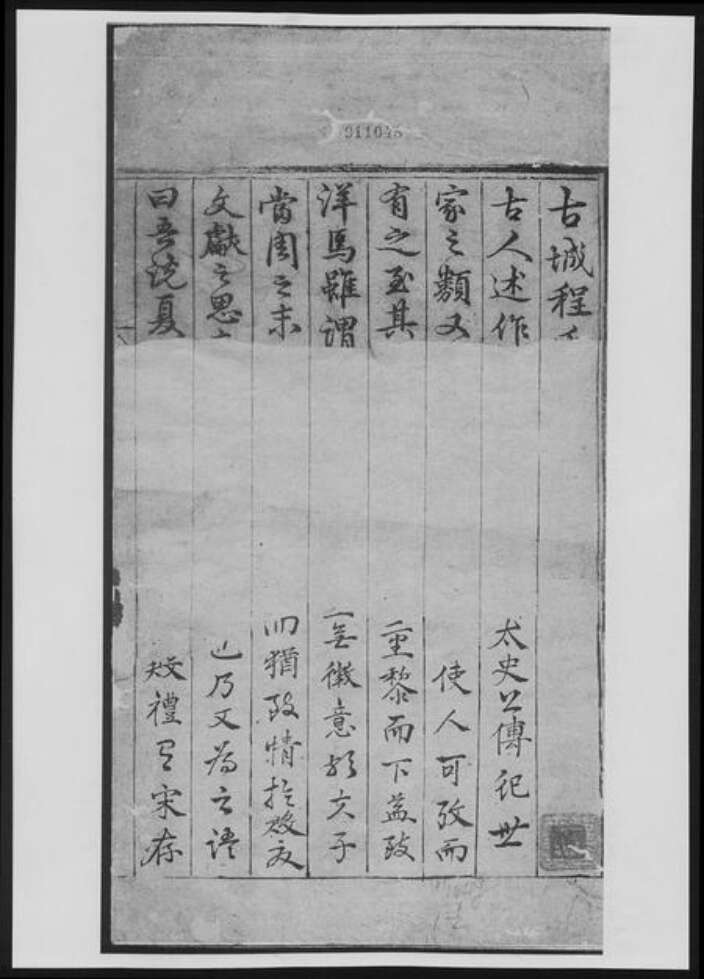 911045
古城程
古人述作
太史公傳祀世
家之類又
使人可攷而
有之至其
重黎而下益致
洋焉雖謂
無徵意於夫子
當周之末
猶致情於
文獻之思
乃又為之語
曰吾說夏
禮有宋存